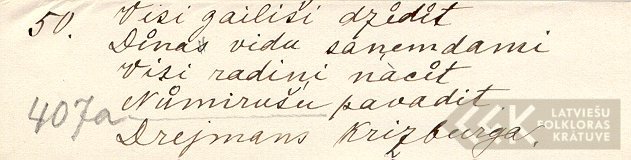 50. Visi gailiši dzîdît
Dinås vidu saņemdami
Visi radiņi nàcît
407a Nůmirušu pavadit,
Drejmans Krizburgā.
LATVIEŠU
FOLKLORAS
KRĀTUVE